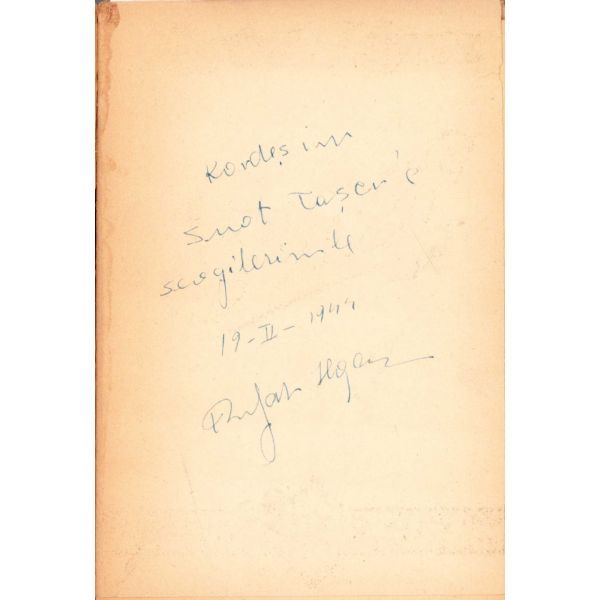 Kardeşim
Suat Taşer'e
sevgilerimle
19-II-1944
Rıfat Ilgaz